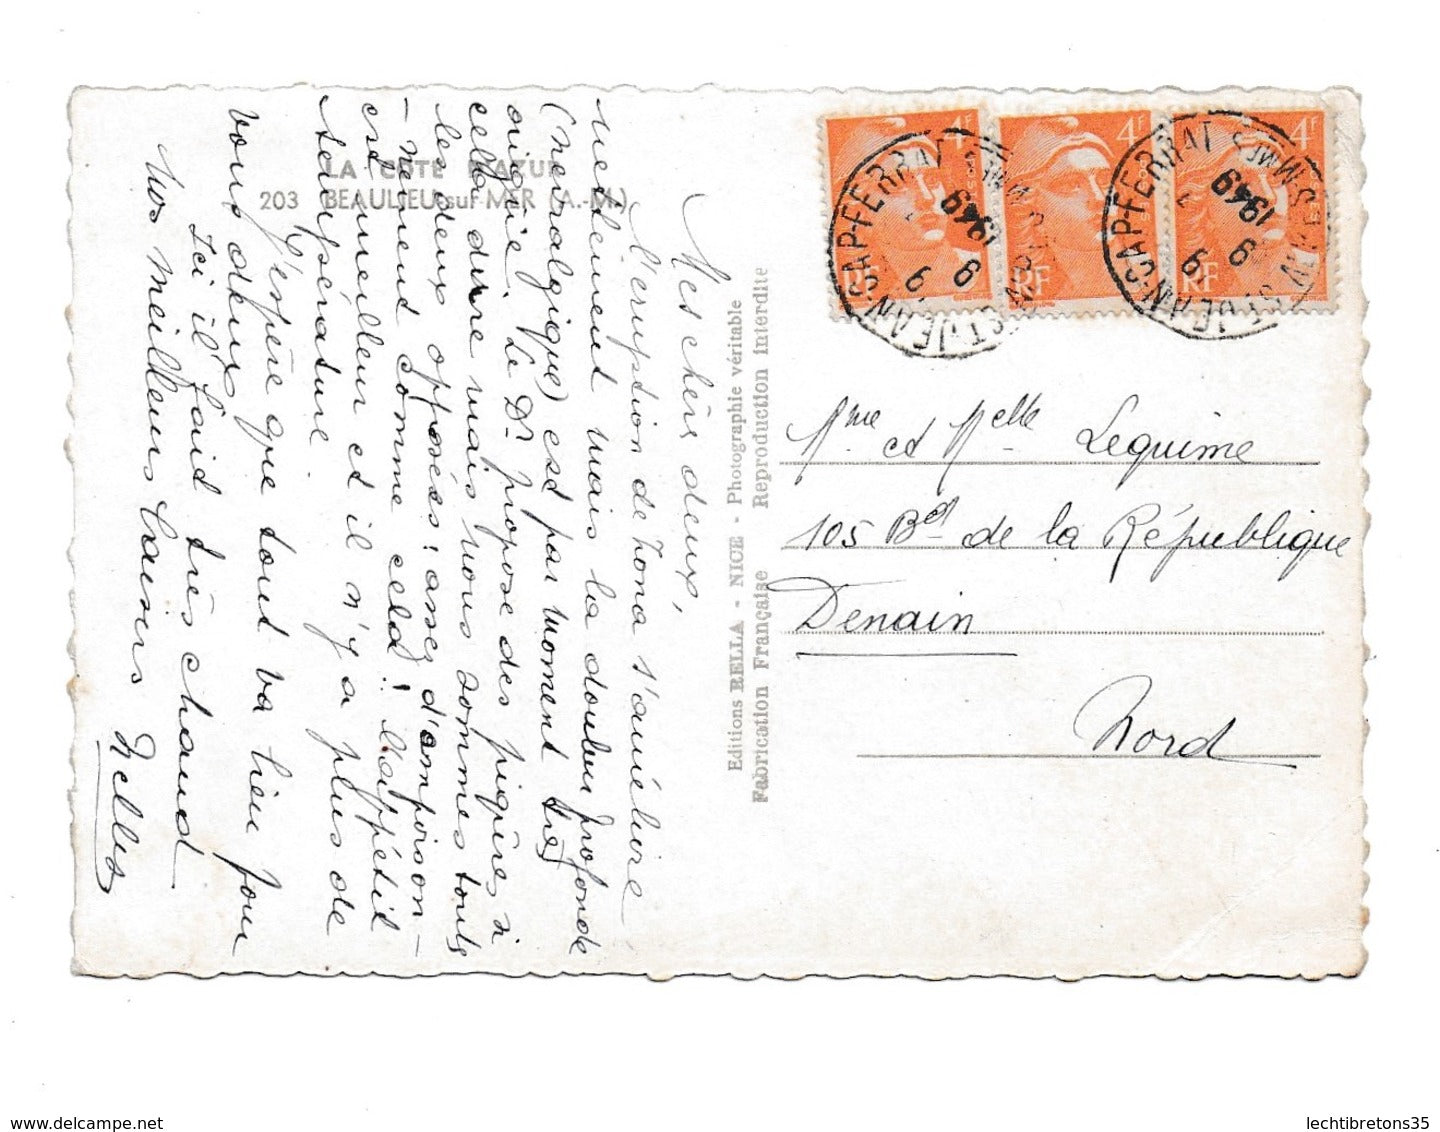 LA COTE D'AZUR
203 BEAULIEU sur MER (A.-M.)
Mes chères deux,
l'éruption de zona s'améliore
nettement mais la douleur profonde
(névralgique) est par moment très
aigüe. Le Dr. propose des piqûres si
cela dure mais nous sommes tous
les deux opposés : assez d'empoison-
-nement comme cela ! L'appétit
est meilleur et il n'y a plus de
température.
J'espère que tout va bien pour
vous deux.
Ici il fait très chaud
Nos meilleurs baisers
Editions RELLA - NICE - Photographie véritable
Fabrication Française Reproduction interdite
4F
RF
4F
RF
4F
RF
ST-JEAN-CAP-FERRAT
9
9
1949
ALPES-MMES
ST-JEAN-CAP-FERRAT
9
9
1949
ALPES-MMES
Mme et Melle Lequime
105 Bd de la République
Denain
Nord
www.delcampe.net
lechtibretons35